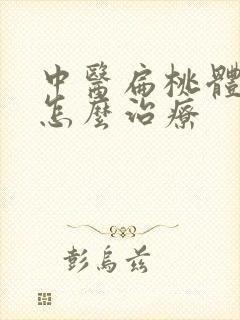 中醫扁桃體
怎麼治療
彭烏茲